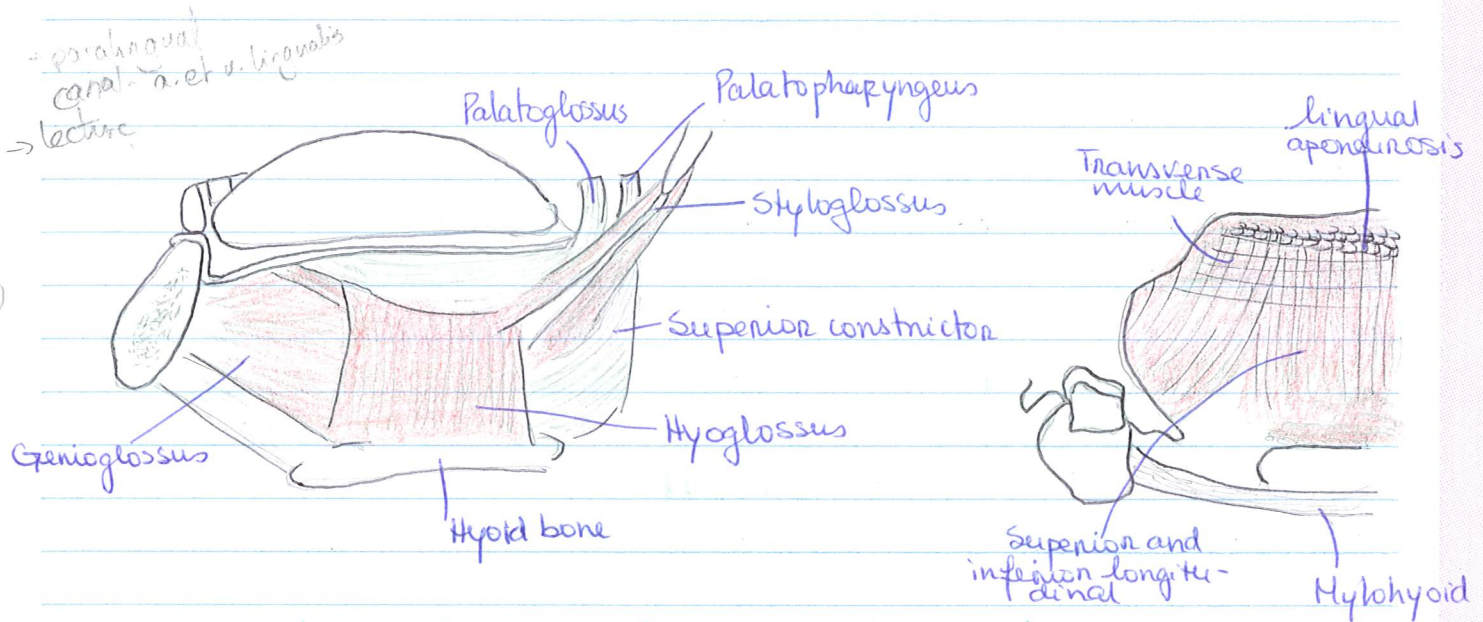 - paralingual
canal - a. et v. lingualis
→ lecture
Palatoglossus
Palatopharyngeus
Styloglossus
Superior constrictor
Hyoglossus
Genioglossus
Hyoid bone
lingual
aponeurosis
Transverse
muscle
Superior and
inferior longitu-
dinal
Mylohyoid